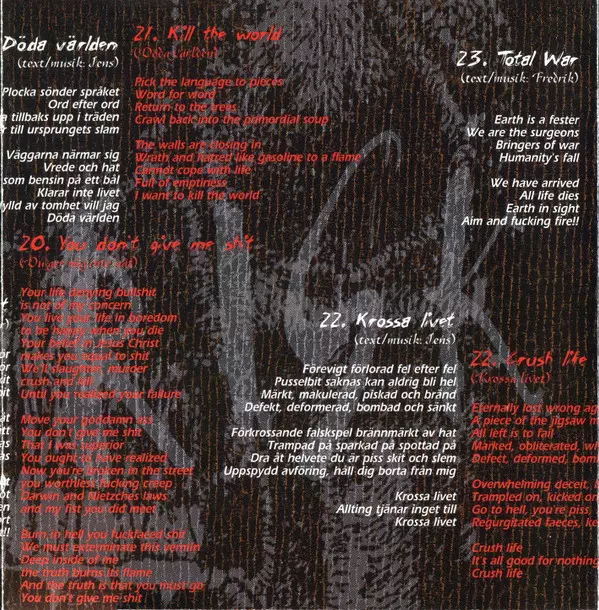 Döda världen
(text/musik: Jens)
Plocka sönder språket
Ord efter ord
a tillbaks upp i träden
r till ursprungets slam
Väggarna närmar sig
Vrede och hat
som bensin på ett bål
Klarar inte livet
fylld av tomhet vill jag
Döda världen
21. Kill the world
(Döda världen)
Pick the language to pieces
Word for word
Return to the trees
Crawl back into the primordial soup
The walls are closing in
Wrath and hatred like gasoline to a flame
Cannot cope with life
Full of emptiness
I want to kill the world
20. You don't give me shit
Your life denying bullshit
is not of my concern
You live your life in boredom
to be happy when you die
Your belief in Jesus Christ
makes you equal to shit
We'll slaughter, murder
crush and kill
Until you realized your failure
Move your goddamn ass
You don't give me shit
That I was superior
You ought to have realized
Now you're broken in the street
you worthless fucking creep
Darwin and Nietzches laws
and my fist you did meet
Burn in hell you fuckfaced shit
We must exterminate this vermin
Deep inside of me
the truth burns its flame
And the truth is that you must go
You don't give me shit
22. Krossa livet
(text/musik: Jens)
Förevigt förlorad fel efter fel
Pusselbit saknas kan aldrig bli hel
Märkt, makulerad, piskad och bränd
Defekt, deformerad, bombad och sänkt
Förkrossande falskspel brännmärkt av hat
Trampad på sparkad på spottad på
Dra åt helvete du är piss skit och slem
Uppspydd avföring, håll dig borta från mig
Krossa livet
Allting tjänar inget till
Krossa livet
23. Total War
(text/musik: Fredrik)
Earth is a fester
We are the surgeons
Bringers of war
Humanity's fall
We have arrived
All life dies
Earth in sight
Aim and fucking fire!!
22. Crush life
(Krossa livet)
Eternally lost wrong ag
A piece of the jigsaw m
All left is to fail
Marked, obliterated, wh
Defect, deformed, bom
Overwhelming deceit, b
Trampled on, kicked on
Go to hell, you're piss,
Regurgitated faeces, ke
Crush life
It's all good for nothing
Crush life